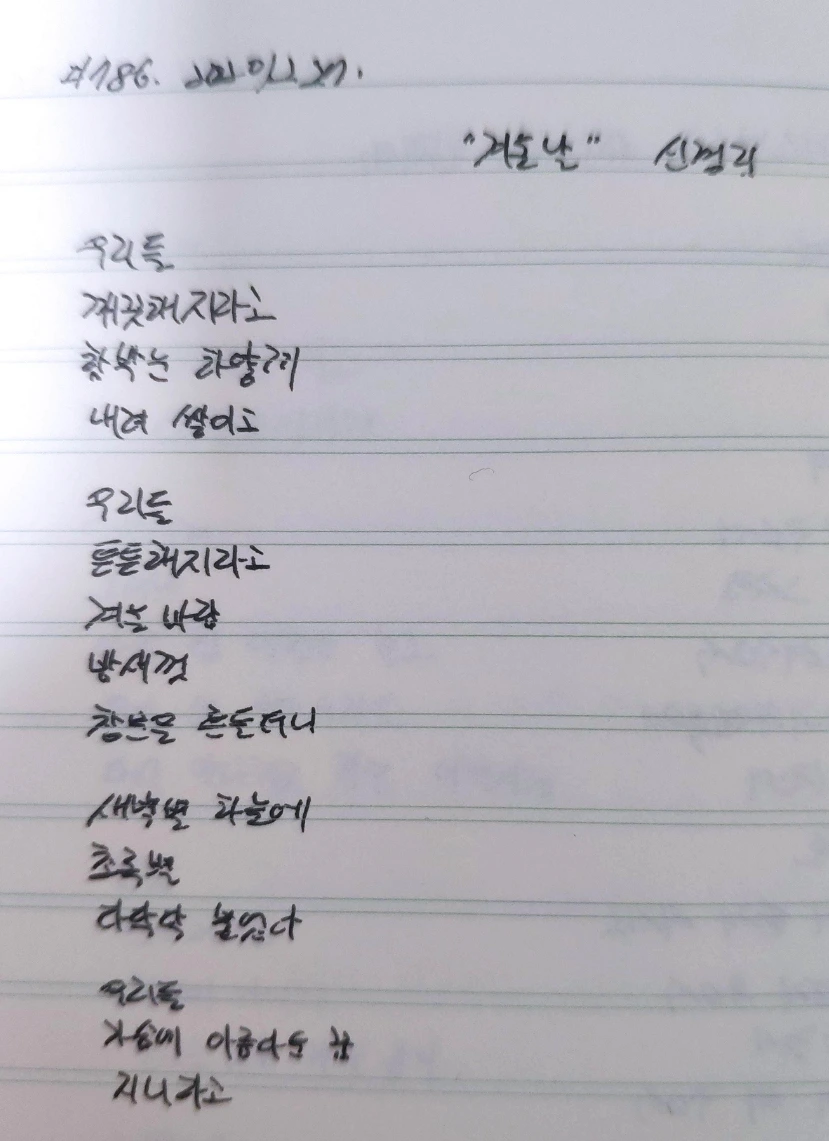 #186.
"겨울날" 신경림
우리들
깨끗해지라고
함박눈 하얗게
내려 쌓이고
우리들
튼튼해지라고
겨울 바람
밤새껏
창문을 흔든더니
새벽별 하늘에
초록별
다닥닥 붙었다
우리들
가슴에 아름다운 꿈
지니라고